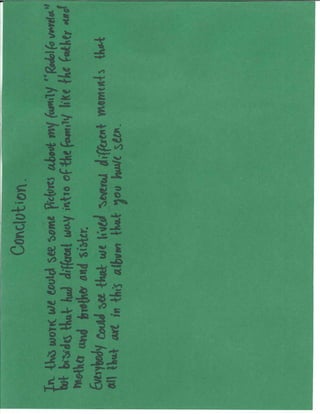 Conclution.
In this work we could see some Pictures about my family "Rodolfo varela"
but bisides that had different way intro of the family like the father and
mother and brother and sister.
Everybody could see that we lived several different moments that
all that are in this album that you have seen.